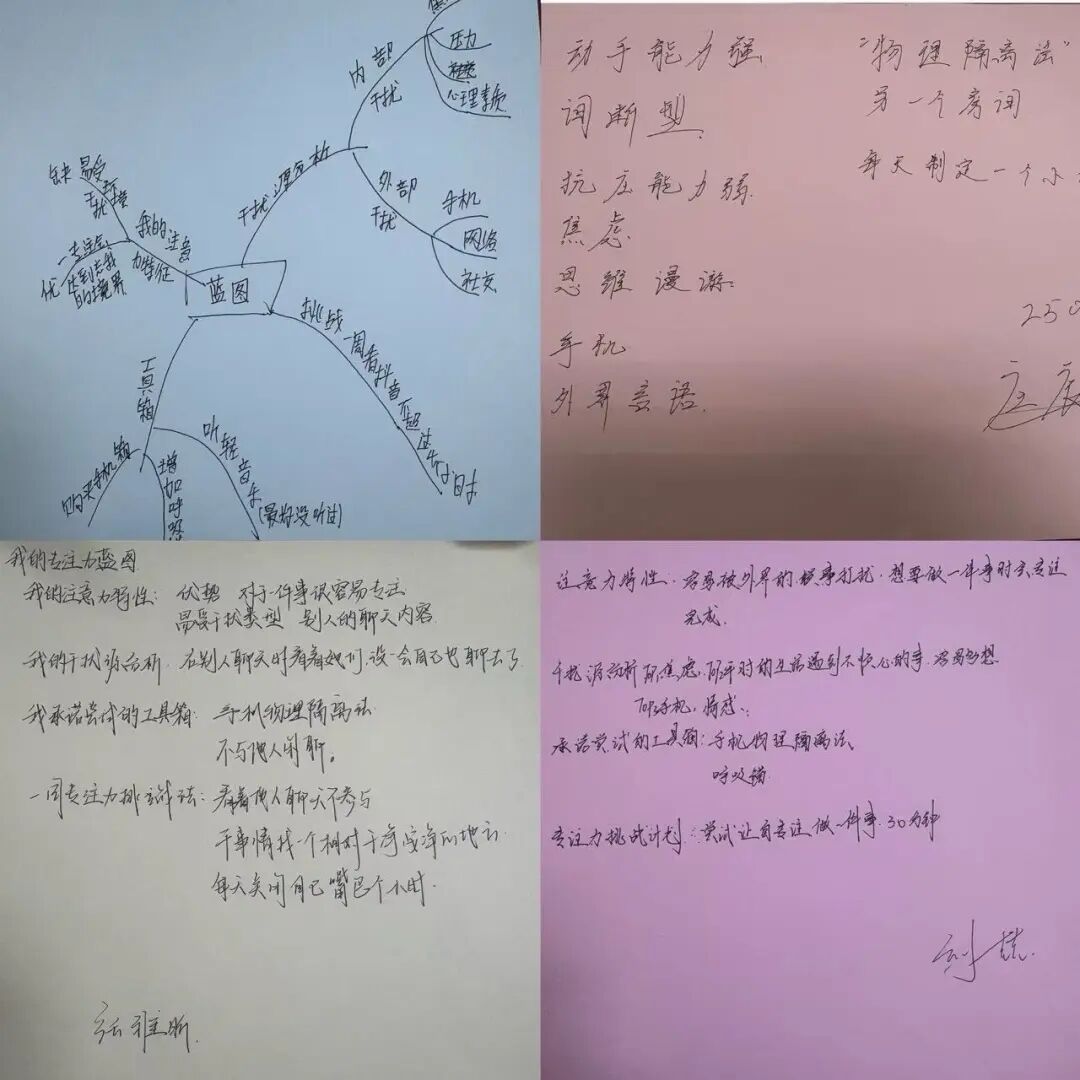 内部干扰
压力
心理素质
干扰源分析
外部干扰
手机
网络
社交
缺 易受环境干扰
我的注意力特征
优
达到忘我的境界
蓝图
挑战一周看抖音不超过
工具箱
购买手机箱
增加呼吸
听轻音乐
(最好没听过)
动手能力强
间断型
抗压能力弱
焦虑
思维漫游
手机
外界言语
“物理隔离法”
另一个房间
每天制定一个小
250
我的专注力蓝图
我的注意力特性: 优势 对于一件事很容易专注
易受干扰类型 别人的聊天内容
我的干扰源分析 在别人聊天时看着她们,没一会自己也聊去了
我承诺尝试的工具箱: 手机物理隔离法
不与他人闲聊。
一周专注力挑战法: 看着他人聊天不参与
干事情找一个相对干净安净的地方
每天关闭自己嘴巴个小时.
张雅昕
注意力特性: 容易被外界的 打扰,想要做一件事时会专注
完成.
干扰源分析 焦虑, 平时的生活遇到不快心的事,容易多想
TOP3手机,情感
承诺尝试的工具箱:手机物理隔离法,
呼吸锚
专注力挑战计划:尝试让自专注做一件事 30分钟